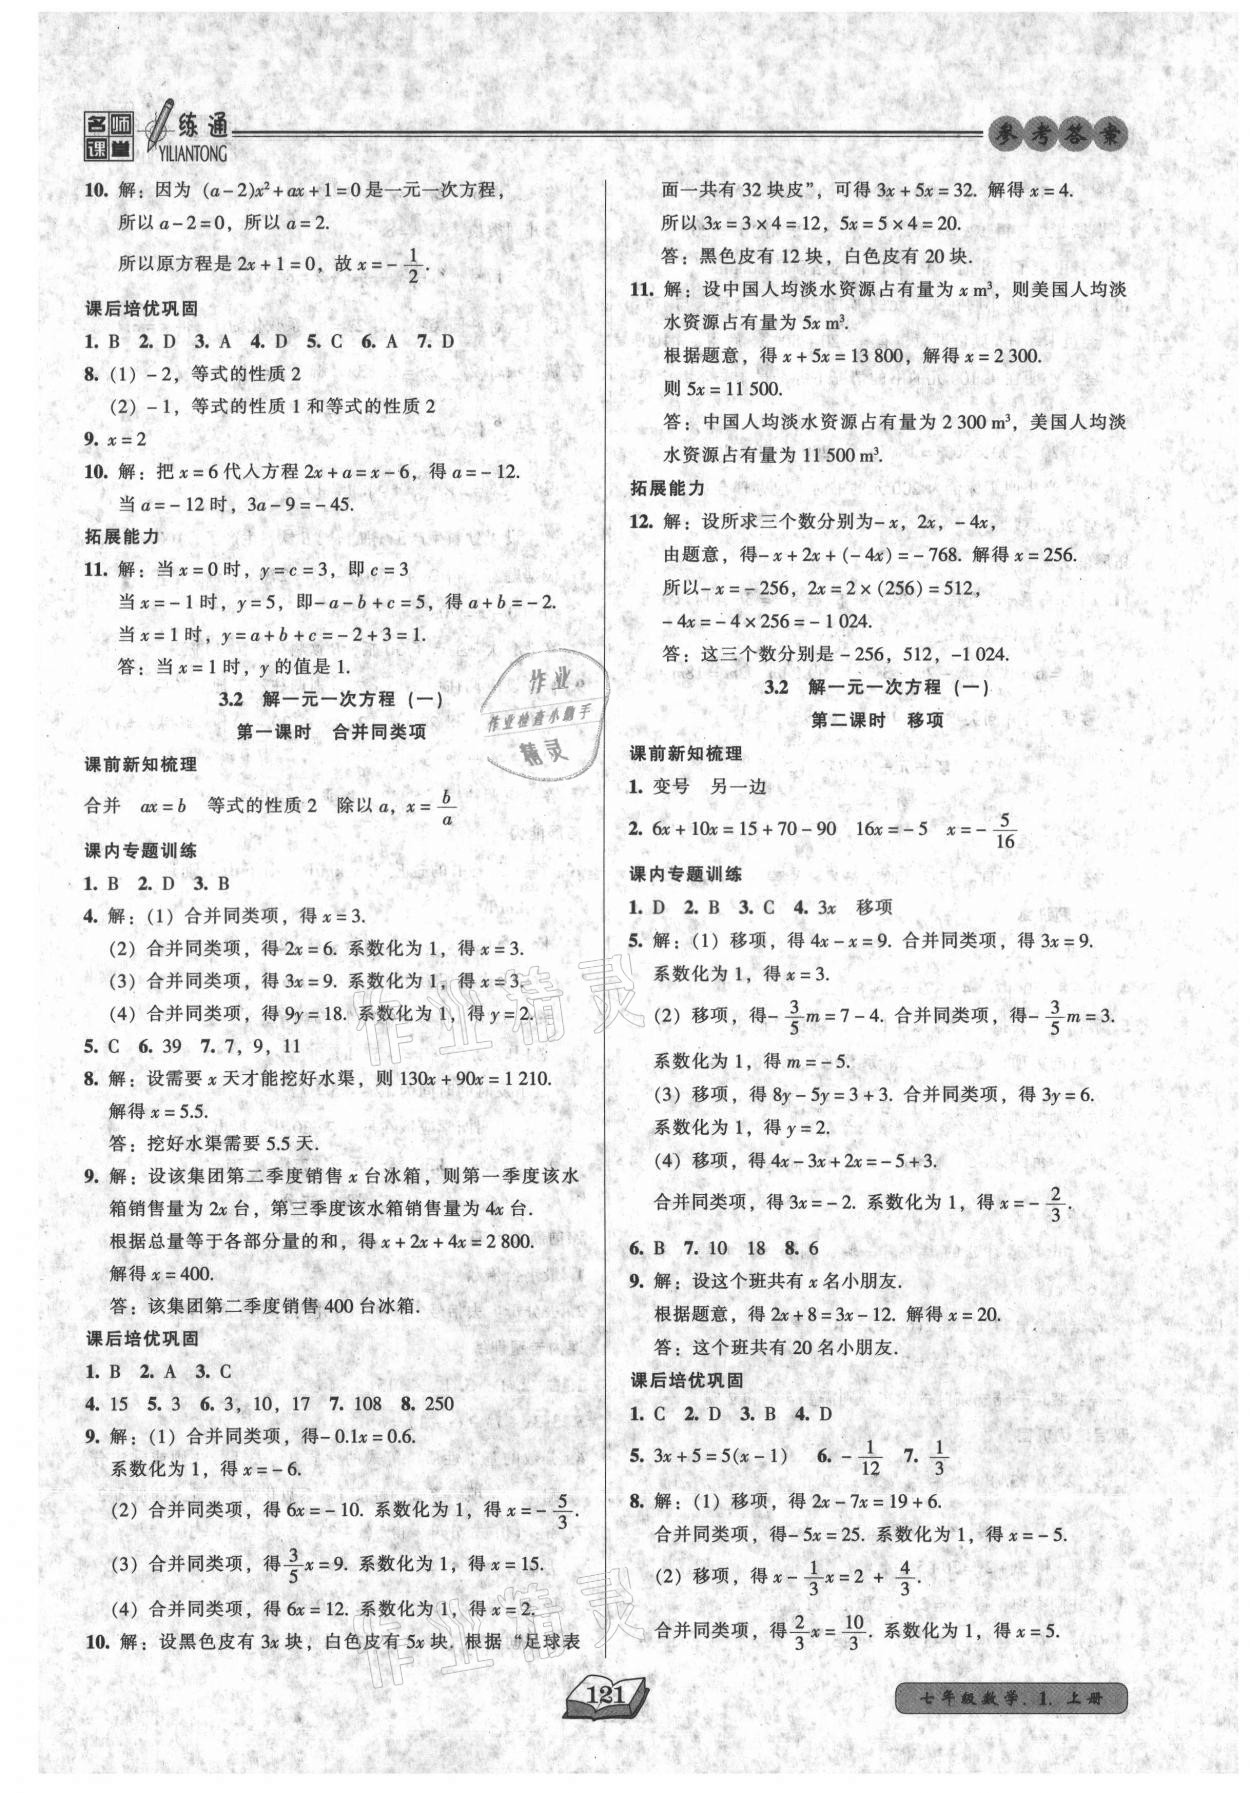 名师课堂 一练通 YILIANTONG
参考答案
10. 解：因为 (a-2)x²+ax+1=0 是一元一次方程，
所以 a-2=0，所以 a=2.
所以原方程是 2x+1=0，故 x=-1/2.
课后培优巩固
1. B 2. D 3. A 4. D 5. C 6. A 7. D
8. (1) -2，等式的性质 2
(2) -1，等式的性质 1 和等式的性质 2
9. x=2
10. 解：把 x=6 代人方程 2x+a=x-6，得 a=-12.
当 a=-12 时，3a-9=-45.
拓展能力
11. 解：当 x=0 时，y=c=3，即 c=3
当 x=-1 时，y=5，即-a-b+c=5，得 a+b=-2.
当 x=1 时，y=a+b+c=-2+3=1.
答：当 x=1 时，y 的值是 1.
3.2 解一元一次方程 (一)
第一课时 合并同类项
课前新知梳理
合并 ax=b 等式的性质 2 除以 a，x=b/a
课内专题训练
1. B 2. D 3. B
4. 解：(1) 合并同类项，得 x=3.
(2) 合并同类项，得 2x=6. 系数化为 1，得 x=3.
(3) 合并同类项，得 3x=9. 系数化为 1，得 x=3.
(4) 合并同类项，得 9y=18. 系数化为 1，得 y=2.
5. C 6. 39 7. 7，9，11
8. 解：设需要 x 天才能挖好水渠，则 130x+90x=1 210.
解得 x=5.5.
答：挖好水渠需要 5.5 天.
9. 解：设该集团第二季度销售 x 台冰箱，则第一季度该水
箱销售量为 2x 台，第三季度该水箱销售量为 4x 台.
根据总量等于各部分量的和，得 x+2x+4x=2 800.
解得 x=400.
答：该集团第二季度销售 400 台冰箱.
课后培优巩固
1. B 2. A 3. C
4. 15 5. 3 6. 3，10，17 7. 108 8. 250
9. 解：(1) 合并同类项，得-0.1x=0.6.
系数化为 1，得 x=-6.
(2) 合并同类项，得 6x=-10. 系数化为 1，得 x=-5/3.
(3) 合并同类项，得 3/5x=9. 系数化为 1，得 x=15.
(4) 合并同类项，得 6x=12. 系数化为 1，得 x=2.
10. 解：设黑色皮有 3x 块，白色皮有 5x 块. 根据 “足球表
面一共有 32 块皮”，可得 3x+5x=32. 解得 x=4.
所以 3x=3×4=12，5x=5×4=20.
答：黑色皮有 12 块，白色皮有 20 块.
11. 解：设中国人均淡水资源占有量为 x m³，则美国人均淡
水资源占有量为 5x m³.
根据题意，得 x+5x=13 800，解得 x=2 300.
则 5x=11 500.
答：中国人均淡水资源占有量为 2 300 m³，美国人均淡
水资源占有量为 11 500 m³.
拓展能力
12. 解：设所求三个数分别为-x，2x，-4x，
由题意，得-x+2x+(-4x)=-768. 解得 x=256.
所以-x=-256，2x=2×(256)=512，
-4x=-4×256=-1 024.
答：这三个数分别是-256，512，-1 024.
3.2 解一元一次方程 (一)
第二课时 移项
课前新知梳理
1. 变号 另一边
2. 6x+10x=15+70-90 16x=-5 x=-5/16
课内专题训练
1. D 2. B 3. C 4. 3x 移项
5. 解：(1) 移项，得 4x-x=9. 合并同类项，得 3x=9.
系数化为 1，得 x=3.
(2) 移项，得-3/5m=7-4. 合并同类项，得-3/5m=3.
系数化为 1，得 m=-5.
(3) 移项，得 8y-5y=3+3. 合并同类项，得 3y=6.
系数化为 1，得 y=2.
(4) 移项，得 4x-3x+2x=-5+3.
合并同类项，得 3x=-2. 系数化为 1，得 x=-2/3.
6. B 7. 10 18 8. 6
9. 解：设这个班共有 x 名小朋友.
根据题意，得 2x+8=3x-12. 解得 x=20.
答：这个班共有 20 名小朋友.
课后培优巩固
1. C 2. D 3. B 4. D
5. 3x+5=5(x-1) 6. -1/12 7. 1/3
8. 解：(1) 移项，得 2x-7x=19+6.
合并同类项，得-5x=25. 系数化为 1，得 x=-5.
(2) 移项，得 x-1/3x=2+4/3.
合并同类项，得 2/3x=10/3. 系数化为 1，得 x=5.
作业
作业检查小助手
精灵
作业精灵
作业精灵
121
七年级数学. 1. 上册